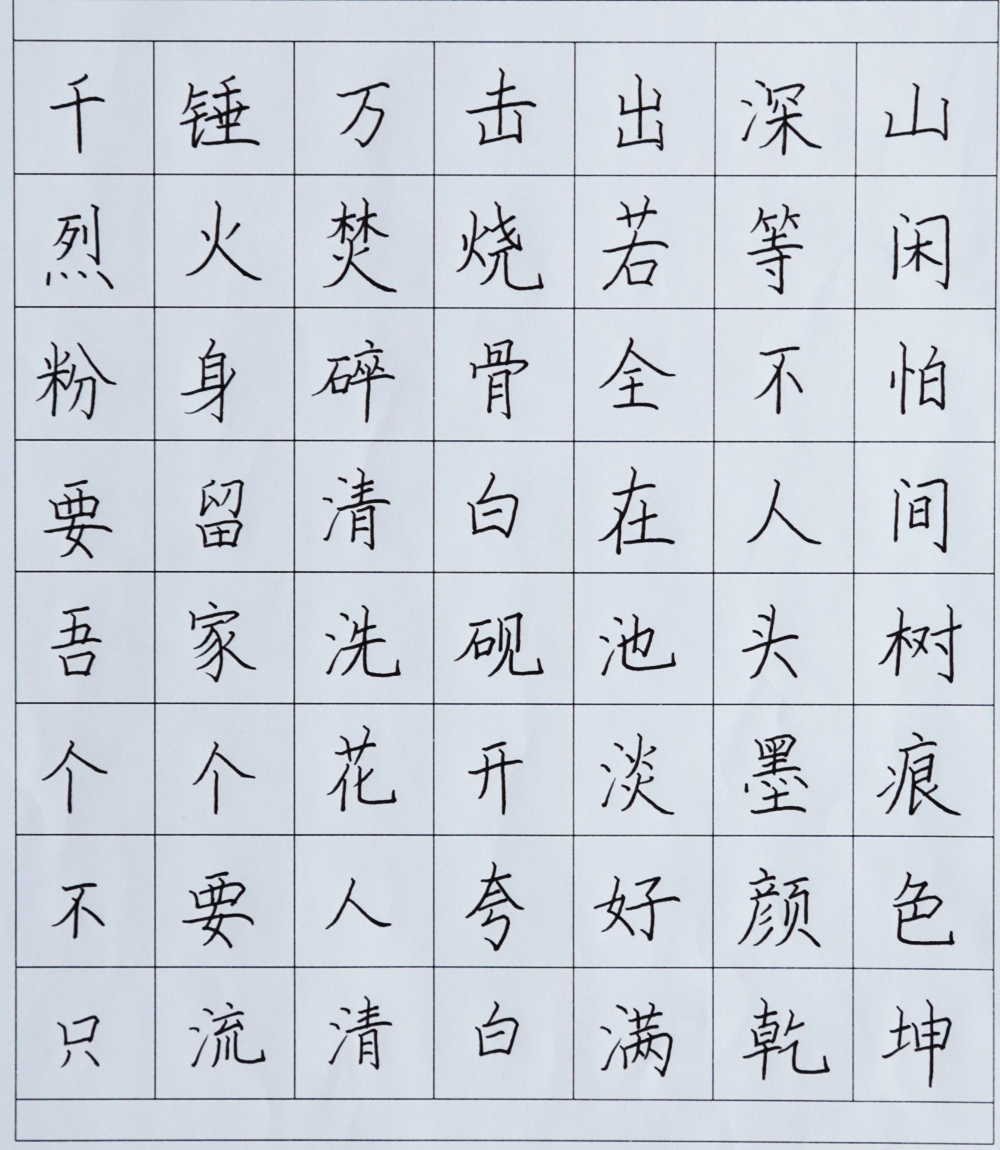 千锤万击出深山
烈火焚烧若等闲
粉身碎骨全不怕
要留清白在人间
吾家洗砚池头树
个个花开淡墨痕
不要人夸好颜色
只流清白满乾坤